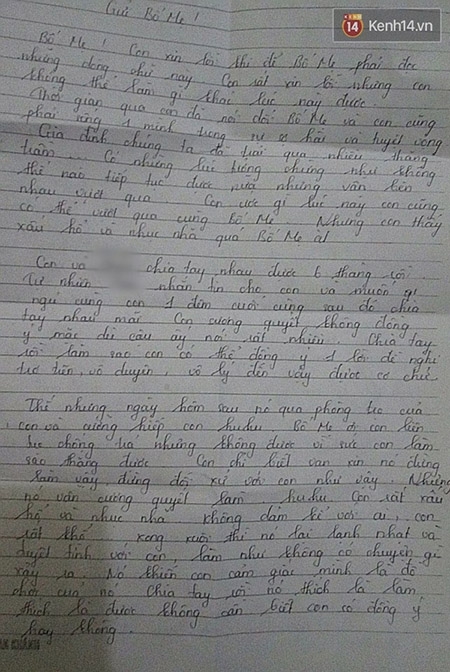 14 Kenh14.vn
Gửi Bố Mẹ!
Bố Mẹ! Con xin lỗi khi để Bố Mẹ phải đọc
những dòng chữ này Con rất xin lỗi nhưng con
không thể làm gì khác lúc này được.
Thời gian qua con đã nói dối Bố Mẹ và con cũng
phải sống 1 mình trong sự sợ hãi và tuyệt vọng
Gia đình chúng ta đã trải qua nhiều thăng
trầm... Có những lúc tưởng chừng như không
thể nào tiếp tục được nữa nhưng vẫn bên
nhau vượt qua Con ước gì lúc này con cũng
có thể vượt qua cùng Bố Mẹ Nhưng con thấy
xấu hổ và nhục nhã quá Bố Mẹ ạ!
Con và chia tay nhau được 6 tháng rồi.
Tự nhiên nhắn tin cho con và muốn
ngủ cùng con 1 đêm cuối cùng sau đó chia
tay nhau mãi Con cương quyết không đồng
ý mặc dù cậu ấy nói rất nhiều. Chia tay
rồi làm sao con có thể đồng ý 1 lời đề nghị
trơ trẽn, vô duyên, vô lý đến vậy được cơ chứ.
Thế nhưng ngày hôm sau nó qua phòng trọ của
con và cưỡng hiếp con huhu Bố Mẹ ơi con liên
tục chống trả nhưng không được vì sức con làm
sao thắng được Con chỉ biết van xin nó đừng
làm vậy, đừng đối xử với con như vậy. Nhưng
nó vẫn cương quyết làm huhu Con rất xấu
hổ và nhục nhã không dám kể với ai, con
rất khổ xong xuôi thì nó lại lạnh nhạt và
tuyệt tình với con, làm như không có chuyện gì
xảy ra. Nó khiến con cảm giác mình là đồ
chơi của nó Chia tay rồi nó thích là làm
thích là được không cần biết con có đồng ý
hay không.